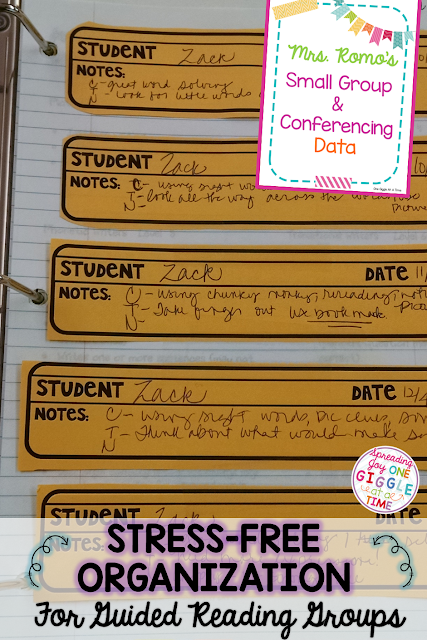 Mrs. Romo's
Small Group
&
Conferencing
Data
STUDENT Zack
NOTES: C-great word solving
N-look for little words
STUDENT Zack
NOTES: C-using sight
T-look all the way across the
STUDENT Zack DATE 11/
NOTES: C-using chunky monkey, rereading,
T-Take fingers out use book mark.
N-
STUDENT Zack DATE 12/
NOTES: C-using sight words, pic clues,
T-Think about what would make
N
STUDENT DATE
NOTES:
Spreading
Joy ONE
GIGGLE
at a
TIME
STRESS-FREE
ORGANIZATION
For Guided Reading Groups